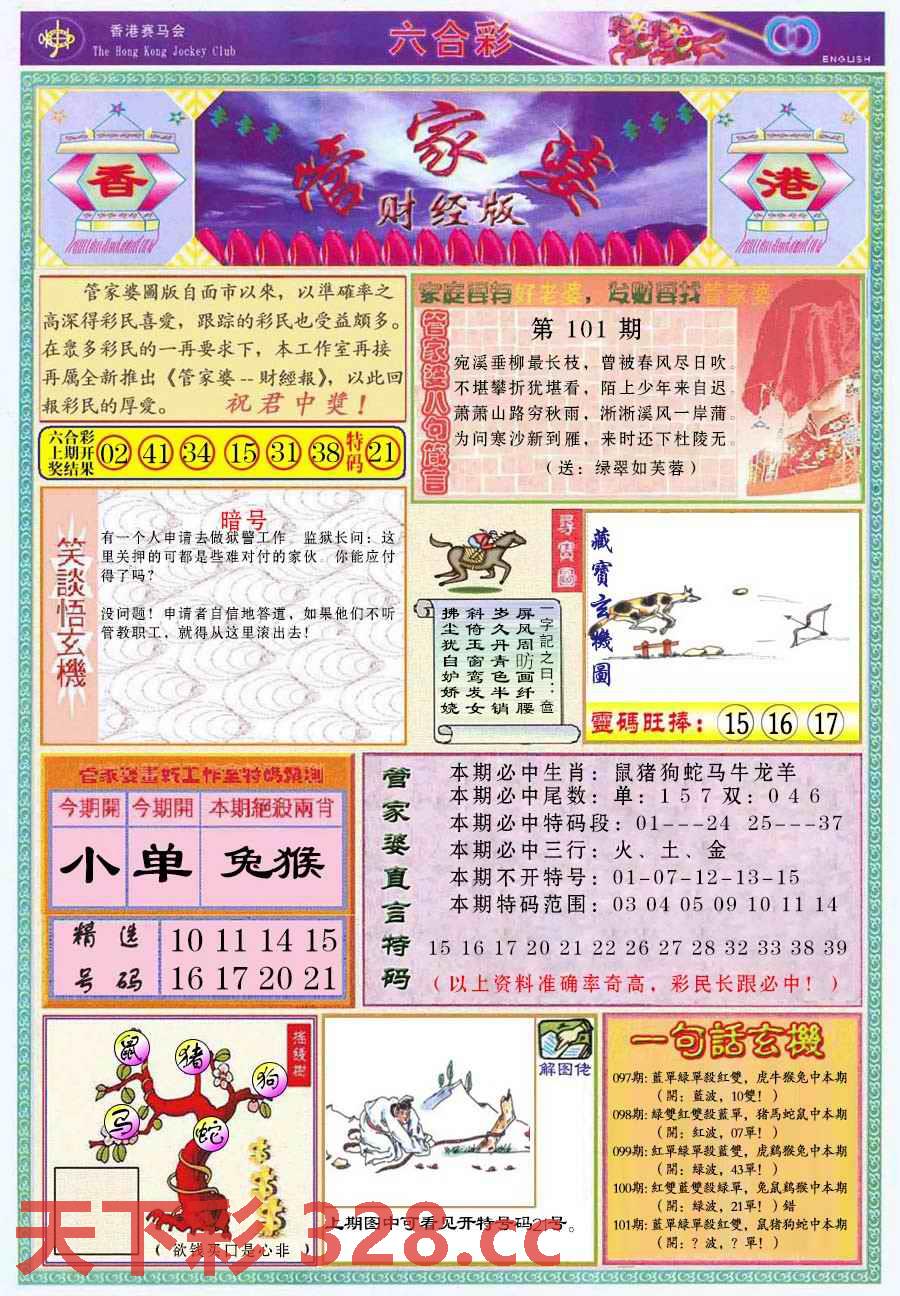 香港赛马会
The Hong Kong Jockey Club
六合彩
ENGLISH
香
管家婆
财经版
港
管家婆圖版自面市以來，以準確率之
高深得彩民喜愛，跟踪的彩民也受益頗多。
在衆多彩民的一再要求下，本工作室再接
再厲全新推出《管家婆--財經報》，以此回
報彩民的厚愛。 祝君中獎！
六合彩
上期开
奖结果
02 41 34 15 31 38 特码 21
家庭要有好老婆，发财要找管家婆
管家婆八句箴言
第 101 期
宛溪垂柳最长枝，曾被春风尽日吹。
不堪攀折犹堪看，陌上少年来自迟。
萧萧山路穷秋雨，淅淅溪风一岸蒲。
为问寒沙新到雁，来时还下杜陵无。
（送：绿翠如芙蓉）
笑談悟玄機
暗号
有一个人申请去做狱警工作。监狱长问：这
里关押的可都是些难对付的家伙。你能应付
得了吗？
没问题！申请者自信地答道，如果他们不听
管教职工，就得从这里滚出去！
尋寶圖
一字記之曰：奩
屏风周昉画纤腰
岁久丹青色半销
斜倚玉窗鸾发女
拂尘犹自妒娇娆
藏寶玄機圖
靈碼旺捧： 15 16 17
管家婆畫數工作室特碼預測
今期開 今期開 本期絕殺兩肖
小 单 兔猴
精选
号码
10 11 14 15
16 17 20 21
管家婆直言特码
本期必中生肖：鼠猪狗蛇马牛龙羊
本期必中尾数：单：1 5 7 双：0 4 6
本期必中特码段：01---24 25---37
本期必中三行：火、土、金
本期不开特号：01-07-12-13-15
本期特码范围：03 04 05 09 10 11 14
15 16 17 20 21 22 26 27 28 32 33 38 39
（以上资料准确率奇高，彩民长跟必中！）
搖錢樹
鼠
猪
狗
马
蛇
（欲钱买口是心非）
解图佬
上期图中可看见开特号码21号。
一句話玄機
097期: 藍單绿單殺紅雙，虎牛猴兔中本期
（開：藍波，10雙！）
098期: 绿雙紅雙殺藍單，猪馬蛇鼠中本期
（開：紅波，07單！）
099期: 紅單绿單殺藍雙，虎鷄猴兔中本期
（開：绿波，43單！）
100期: 紅雙藍雙殺绿單，兔鼠鷄猴中本期
（開：绿波，21單！）錯
101期: 藍單绿單殺紅雙，鼠猪狗蛇中本期
（開：？波，？單！）
天下彩 328.cc